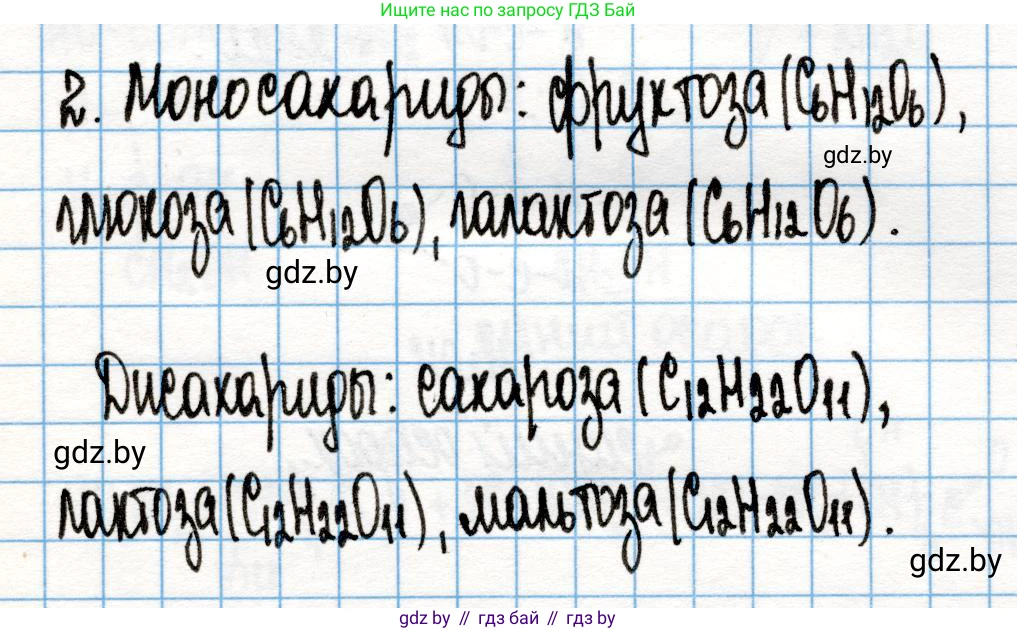 Ищите нас по запросу ГДЗ Бай
2. Моносахариды: фруктоза (C₆H₁₂O₆),
gdz.by
глюкоза (C₆H₁₂O₆), галактоза (C₆H₁₂O₆).
gdz.by
Дисахариды: сахароза (C₁₂H₂₂O₁₁),
gdz.by
лактоза (C₁₂H₂₂O₁₁), мальтоза (C₁₂H₂₂O₁₁).
gdz.by
gdz.by // гдз бай // гдз by